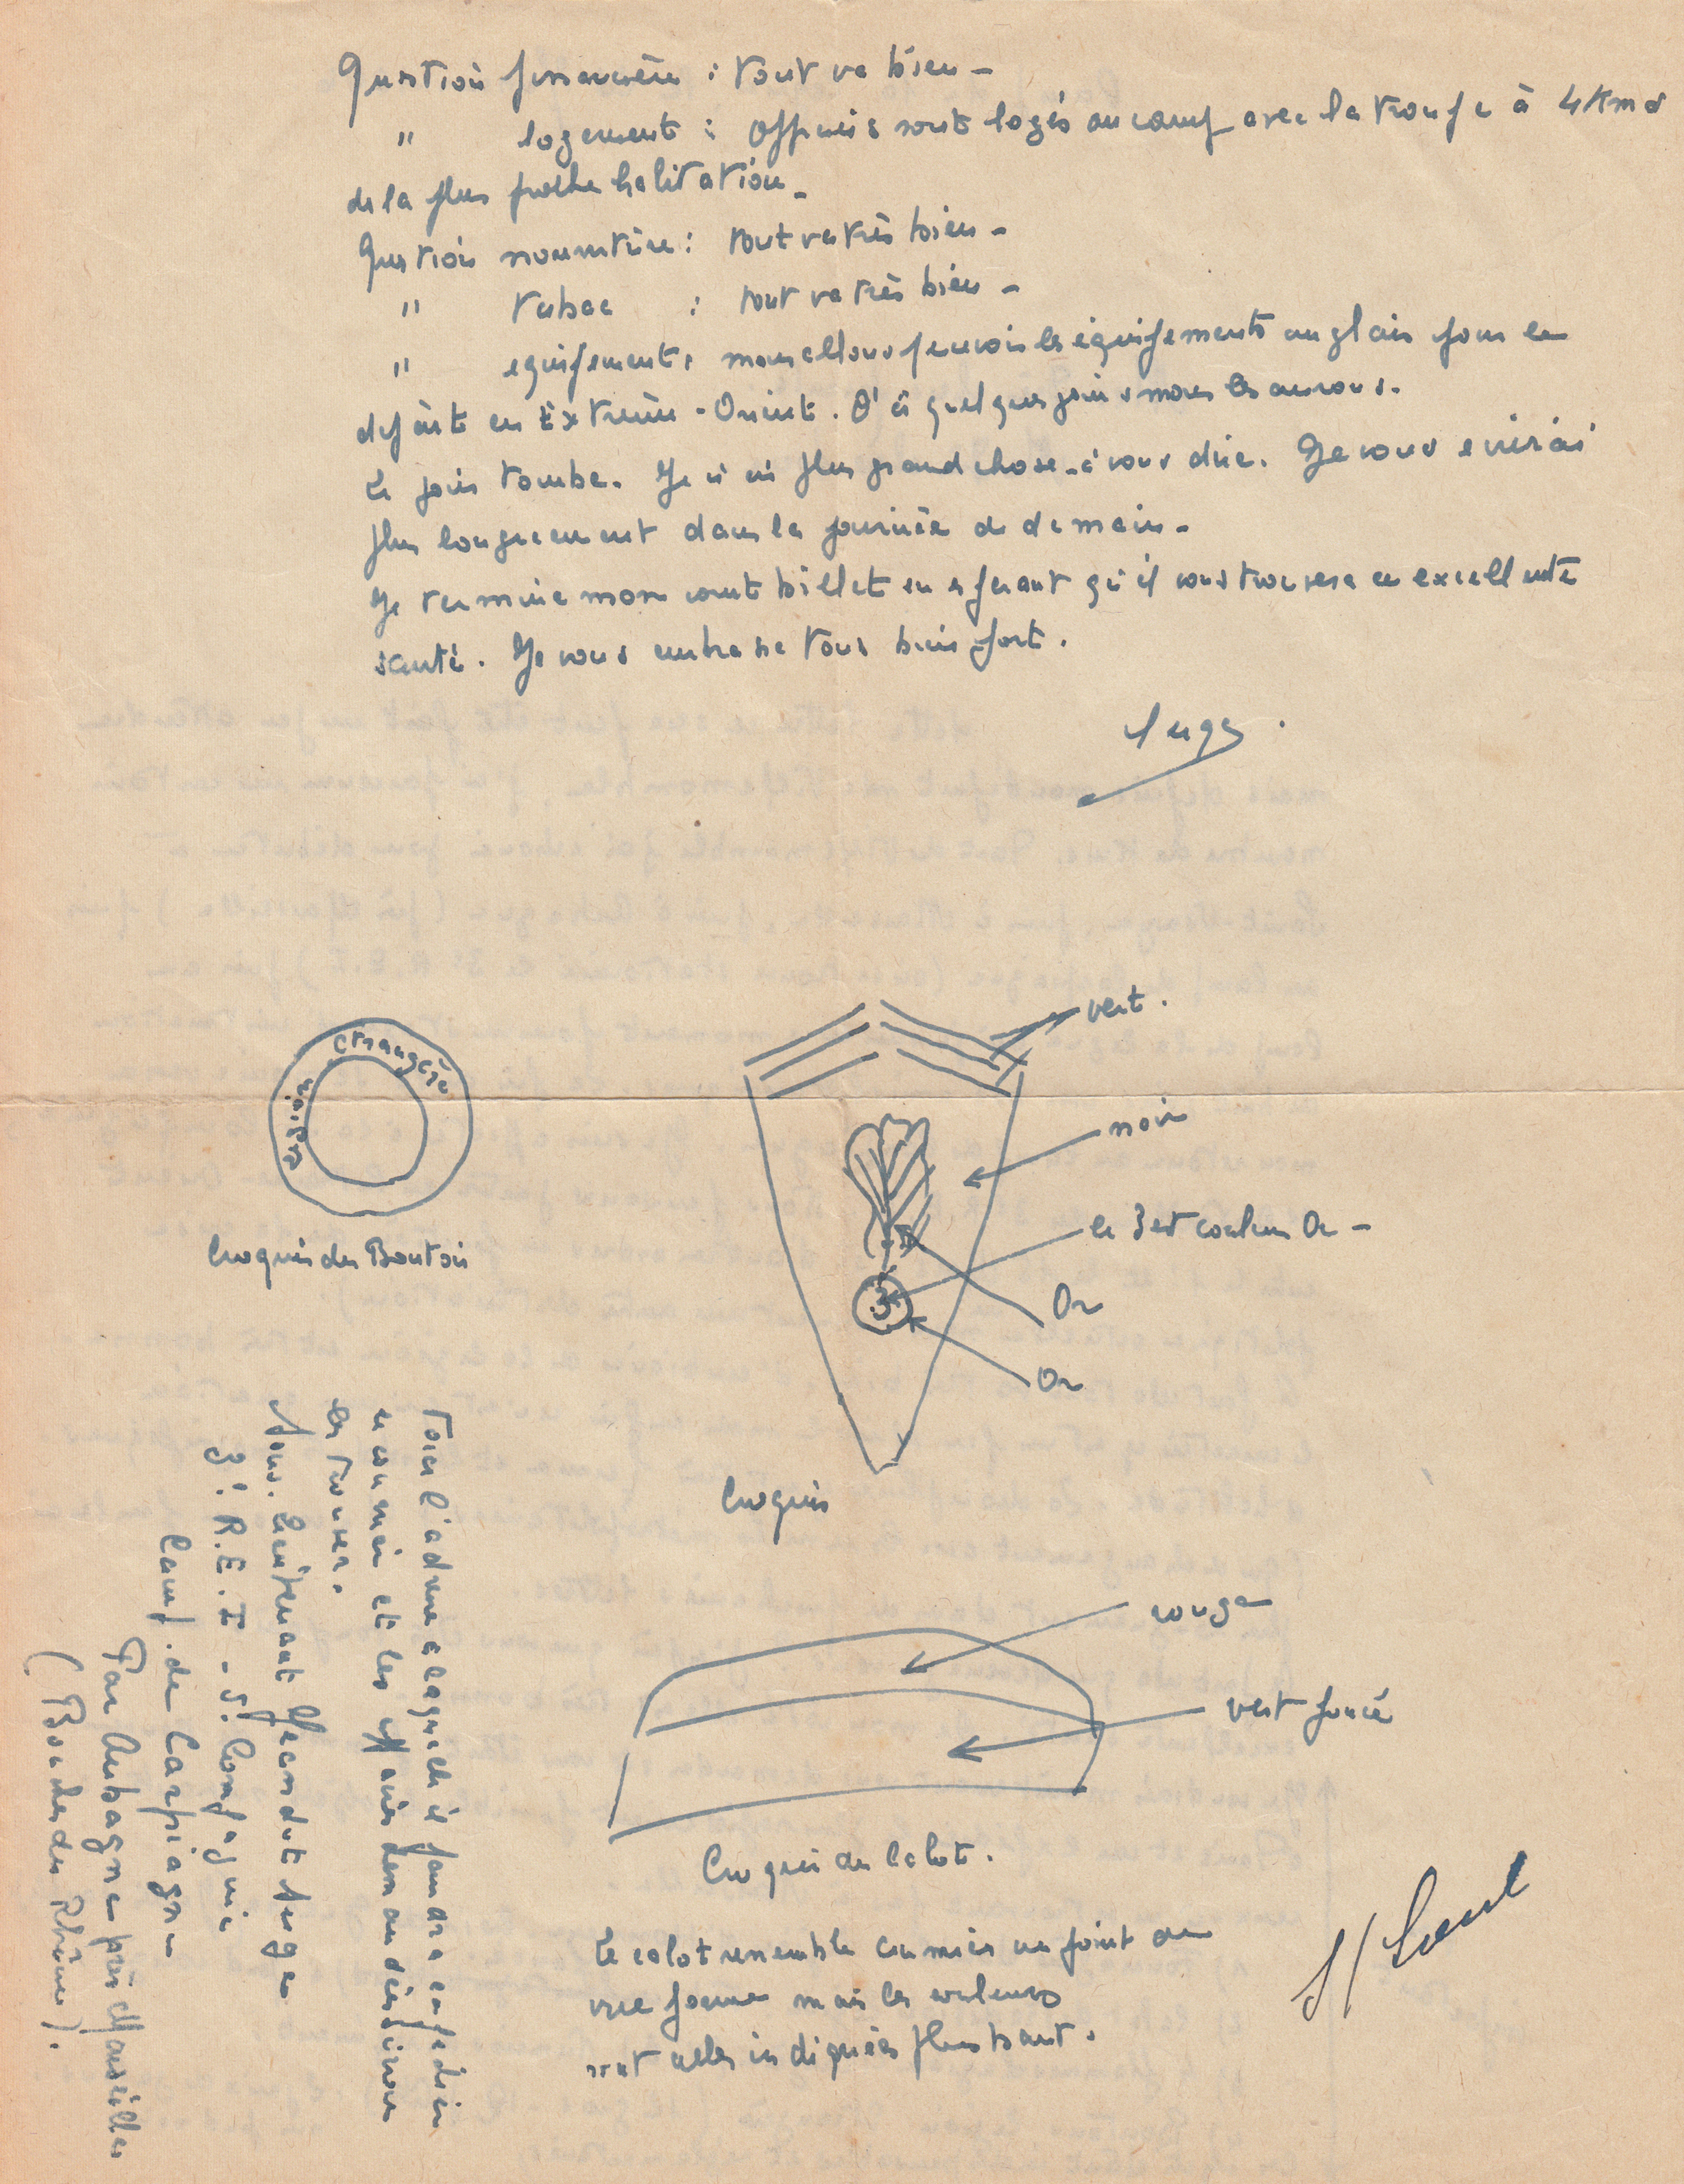 Question financière : tout va bien -
" logement : Officiers sont logés au camp avec la troupe à 4 Kms
de la plus proche habitation -
Question nourriture : tout va très bien -
" tabac : tout va très bien -
" equipement : nous allons percevoir les équipements anglais pour le
départ en Extrême-Orient. D'ici quelques jours nous les aurons.
Le jour tombe. Je n'ai plus grand chose à vous dire. Je vous ecrirai
plus longuement dans la journée de demain -
Je termine mon court billet en esperant qu'il vous trouvera en excellente
santé. Je vous embrasse tous bien fort.
Serge.
étrangère
Légion
Croquis des Bouton
vert.
noir
le 3 est couleur Or -
Or
Or
Croquis
Voici l'adresse à laquelle il faudra expedier
le courrier et les
les trouver.
Sous-Lieutenant Serge
3e R.E.I - 5e Compagnie
Camp. de Carpiagne
Par Aubagne près Marseilles
(Bouches du Rhône).
rouge
vert foncé
Croquis du Calot.
Le calot ressemble au mien au point de
vue forme mais les couleurs
sont celles indiquées plus haut.